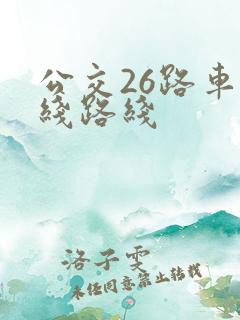 公交26路車
綫路綫
洛子雯
未经同意禁止转载